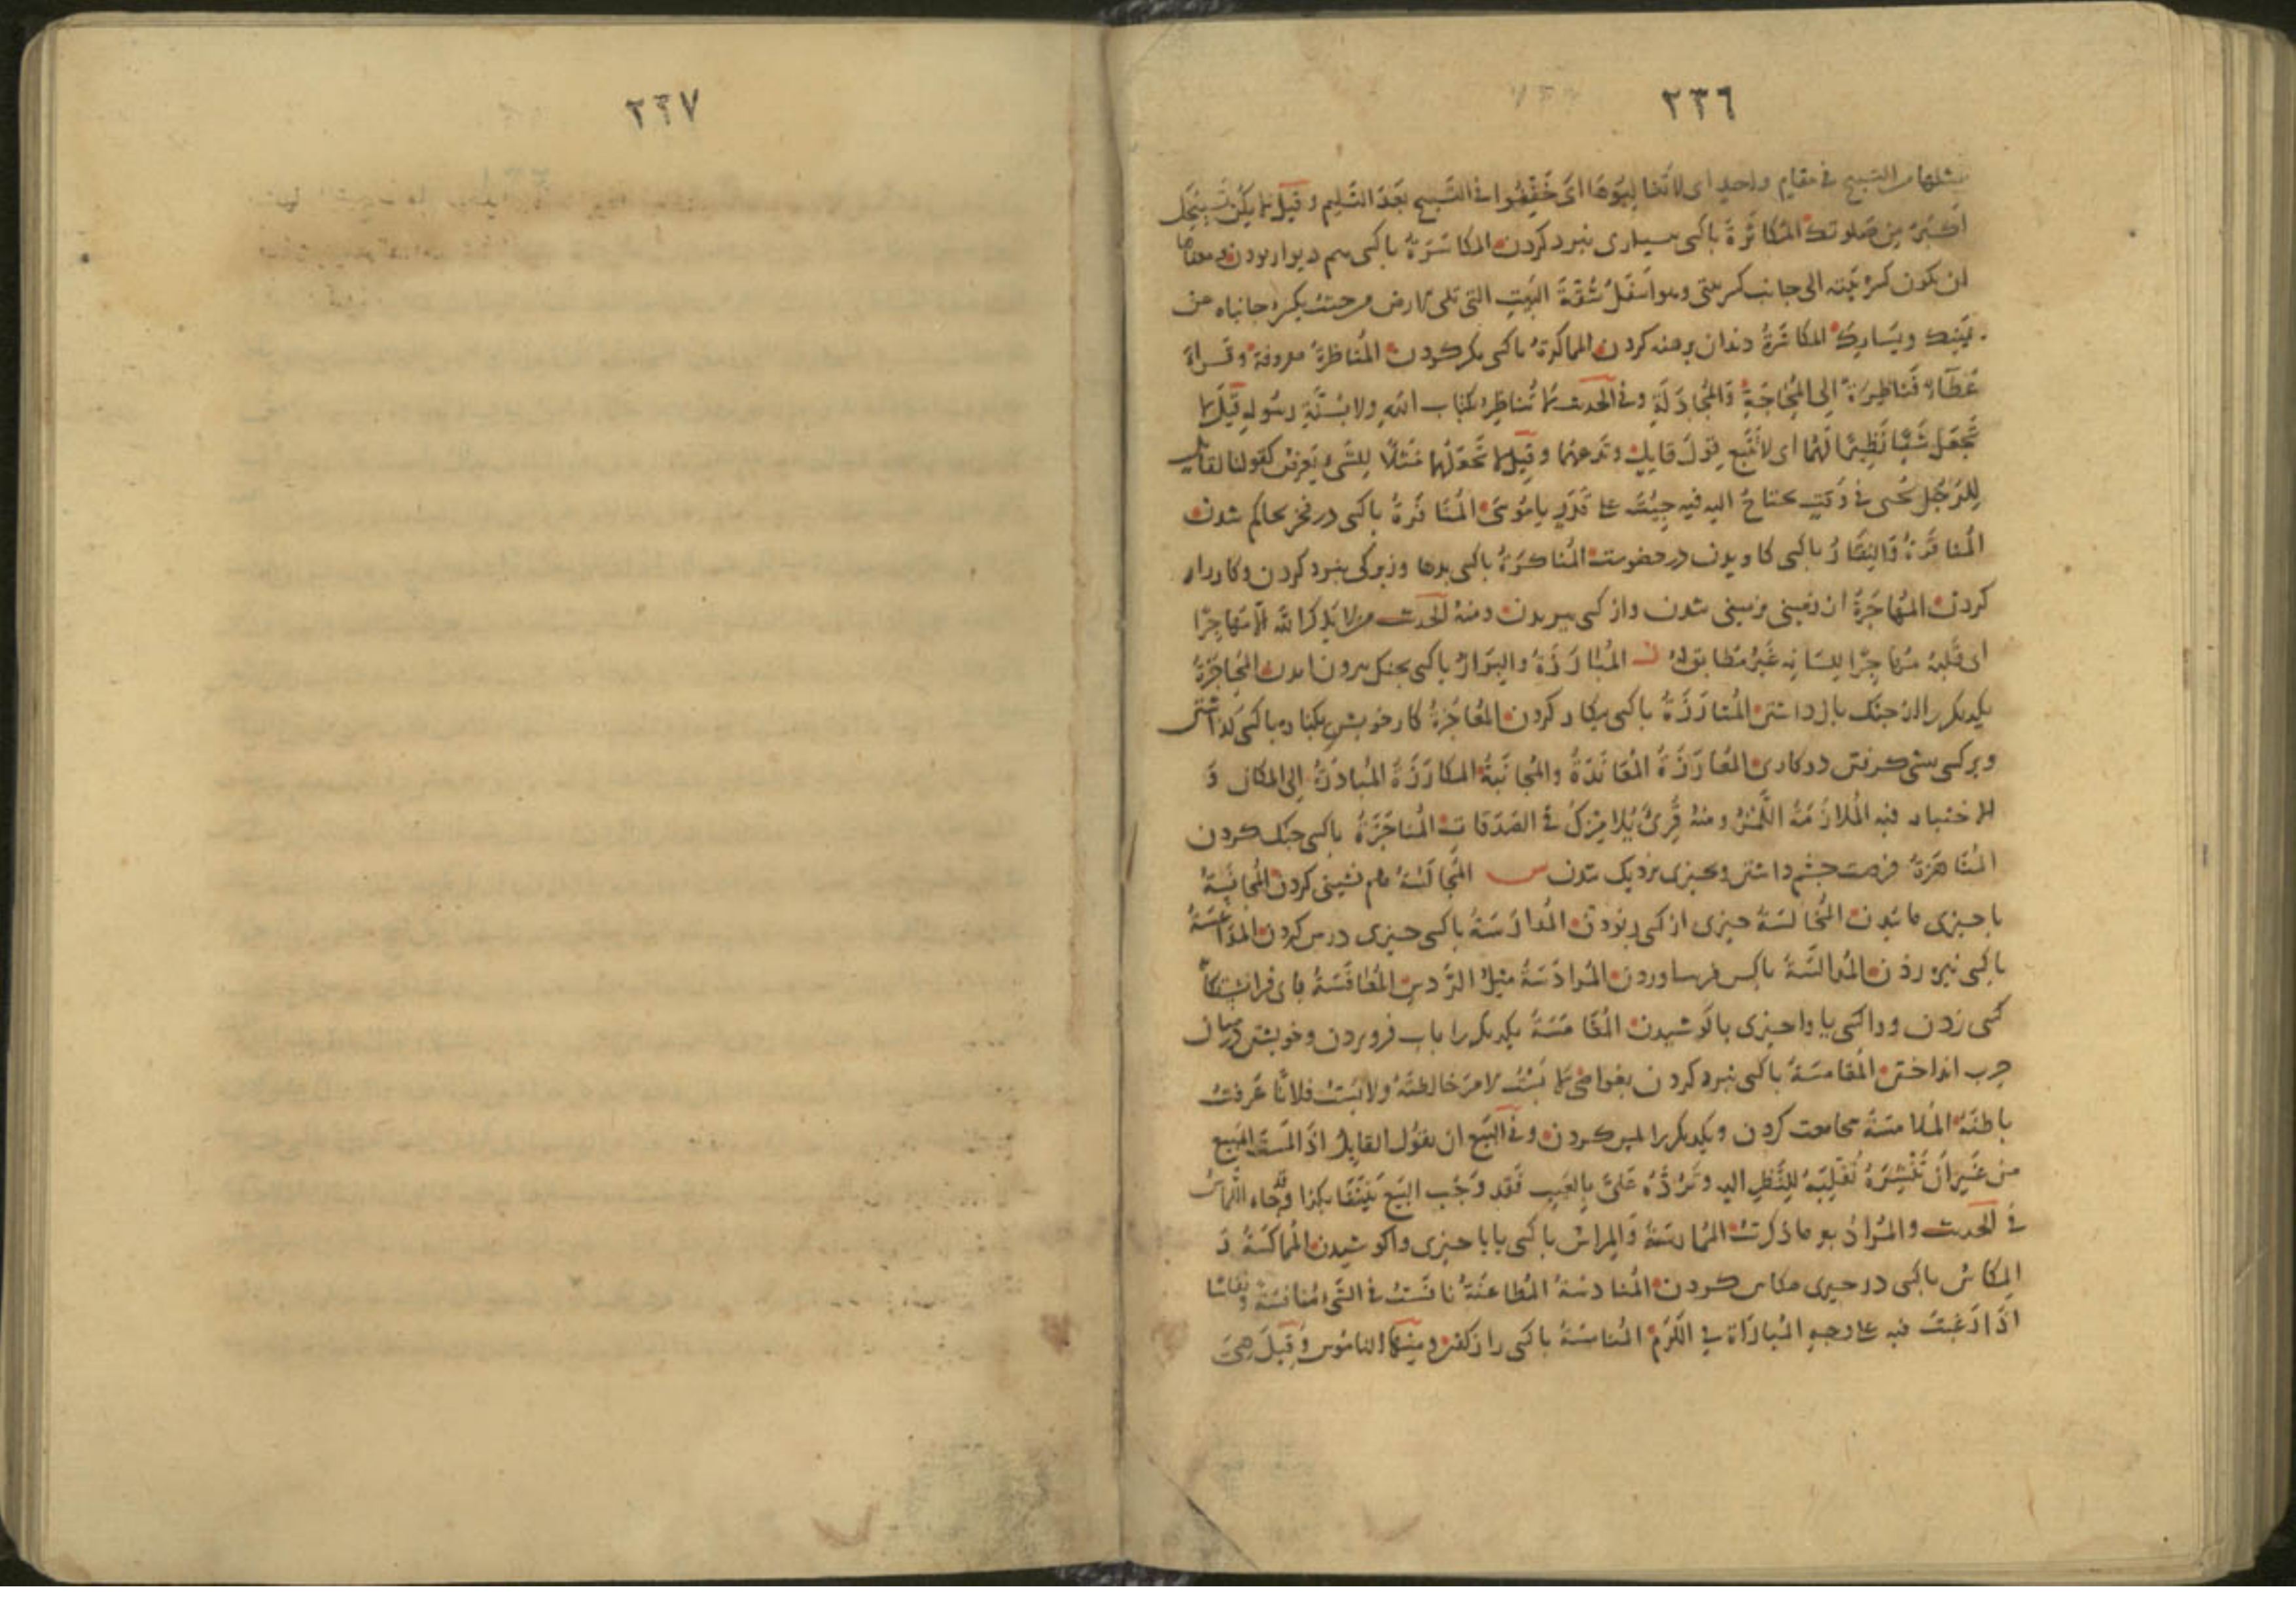 ٢٣٦
بمثلها من التسبيح في مقام واحد اى لا تغالبوها اى خَفِّفُوا في التسبيح بَعدَ التَّسليم وقيل لا يكن تسبيحك
اكثر من صلوتك المُكاثَرَةُ باكسى ببسيارى نبرد كردن المكاسَرَةُ باكسى هم ديوار بودن ومعناها
ان يكون كسر بيته الى جانب كسر بيتى وهو اسفَلُ شُقَّةِ البَيتِ التى تلى الارض من حيث يكسر جانباه عن
يمينك ويسارك المكاشَرَةُ دندان برهنه كردن المماكرة باكسى مكر كردن المُناظَرةُ معروفة وقراءة
عَطَاءٍ فَناظِرَةٌ الى المُحاجَّةِ والمُجادَلَةِ وفي الحديث لا تُناظِر بكتاب الله ولا بسُنَّةِ رسُوله قيل لا
تَجعَل شَيئًا نَظِيرًا لهما اى لا تَتَّبِع قولَ قايلٍ وتدعهما وقيل لا تجعلهما مَثَلًا لِلشَّىء يَعرِض كقولنا لقايل
لِلرَّجُل يجىء في وَقتٍ يحتاج اليه فيه جِئتَ على قَدَرٍ يا مُوسَى المُنَافَرَةُ باكسى در فخر بحاكم شدن
المُناقَرَةُ والنِقَارُ باكسى كاويدن در خصومت المُناكَرَةُ باكسى بدها وزيركى نبرد كردن وكارزار
كردن المُهاجَرَةُ از زمينى بزمينى شدن واز كسى ببريدن ومنه الحديث من لا يذكر الله الا مُهاجِرًا
اى قَلبُهُ مُهاجِرًا لِلسَانِه غَيرُ مُطابِقٍ له ز المُبارَزَةُ والبِرَازُ باكسى بجنك بيرون امدن المُحاجَزَةُ
يكديكر را از جنك باز داشتن المُعارَزَةُ باكسى پيكار كردن المُعاجَزَةُ كار خويش بكنار باكسى كذاشتن
وبر كسى پيشى كرفتن در كارى المُعارَزَةُ المُعانَدَةُ والمُجانَبَةُ المكارَزَةُ المُبادَرَةُ الى المكان و
الاختباء فيه المُلامَزَةُ اللَّمزُ ومنه قُرِئ يُلامِزُكَ في الصَدَقات المُناجَزَةُ باكسى جنك كردن
المُناهَزَةُ فرصت چشم داشتن وبچيزى نزديك شدن س المُجالَسَةُ هم نشينى كردن المُجانَسَةُ
باچيزى مانيدن المُخالَسَةُ چيزى از كسى ربودن المُدارَسَةُ باكسى چيزى درس كردن المُداعَسَةُ
باكسى نيزه زدن المُدالَسَةُ باكسى فريب آوردن المُرادَسَةُ مثل الرَّدس المُعافَسَةُ
كسى زدن وواكسى يا واچيزى باكوشيدن المُقامَسَةُ يكديكر را باب فرو بردن وخويشتن در ميان
حرب انداختن المُغامَسَةُ باكسى نبرد كردن
باطنه المُلامَسَةُ مجامعت كردن ويكديكر را لمس كردن وفي البَيع ان يقول القايل اذا لمستَ المبيع
من غَيرِ أن تَنشُرَهُ تُقَلِّبَهُ لِلنَّظَرِ اليه وتَرُدَّهُ عَلَىَّ بِالعَيب فَقد وَجَبَ البَيع بَينَنَا بكذا وقد جاء اللماس
في الحديث والمُرَادُ به ما ذكرت المُمارَسَةُ والمِراسُ باكسى يا باچيزى واكوشيدن المُماكَسَةُ و
المِكاسُ باكسى در چيزى مكاس كردن المُنادَسَةُ المُطاعَنَةُ نافَستُ في الشَّىء مُنافَسَةً ونِفاسًا
اذا رَغِبتَ فيه على وجه المُباراة في الكَرَم المُنامَسَةُ باكسى راز كفتن ومنها الناموس وقيل هى
٢٣٧